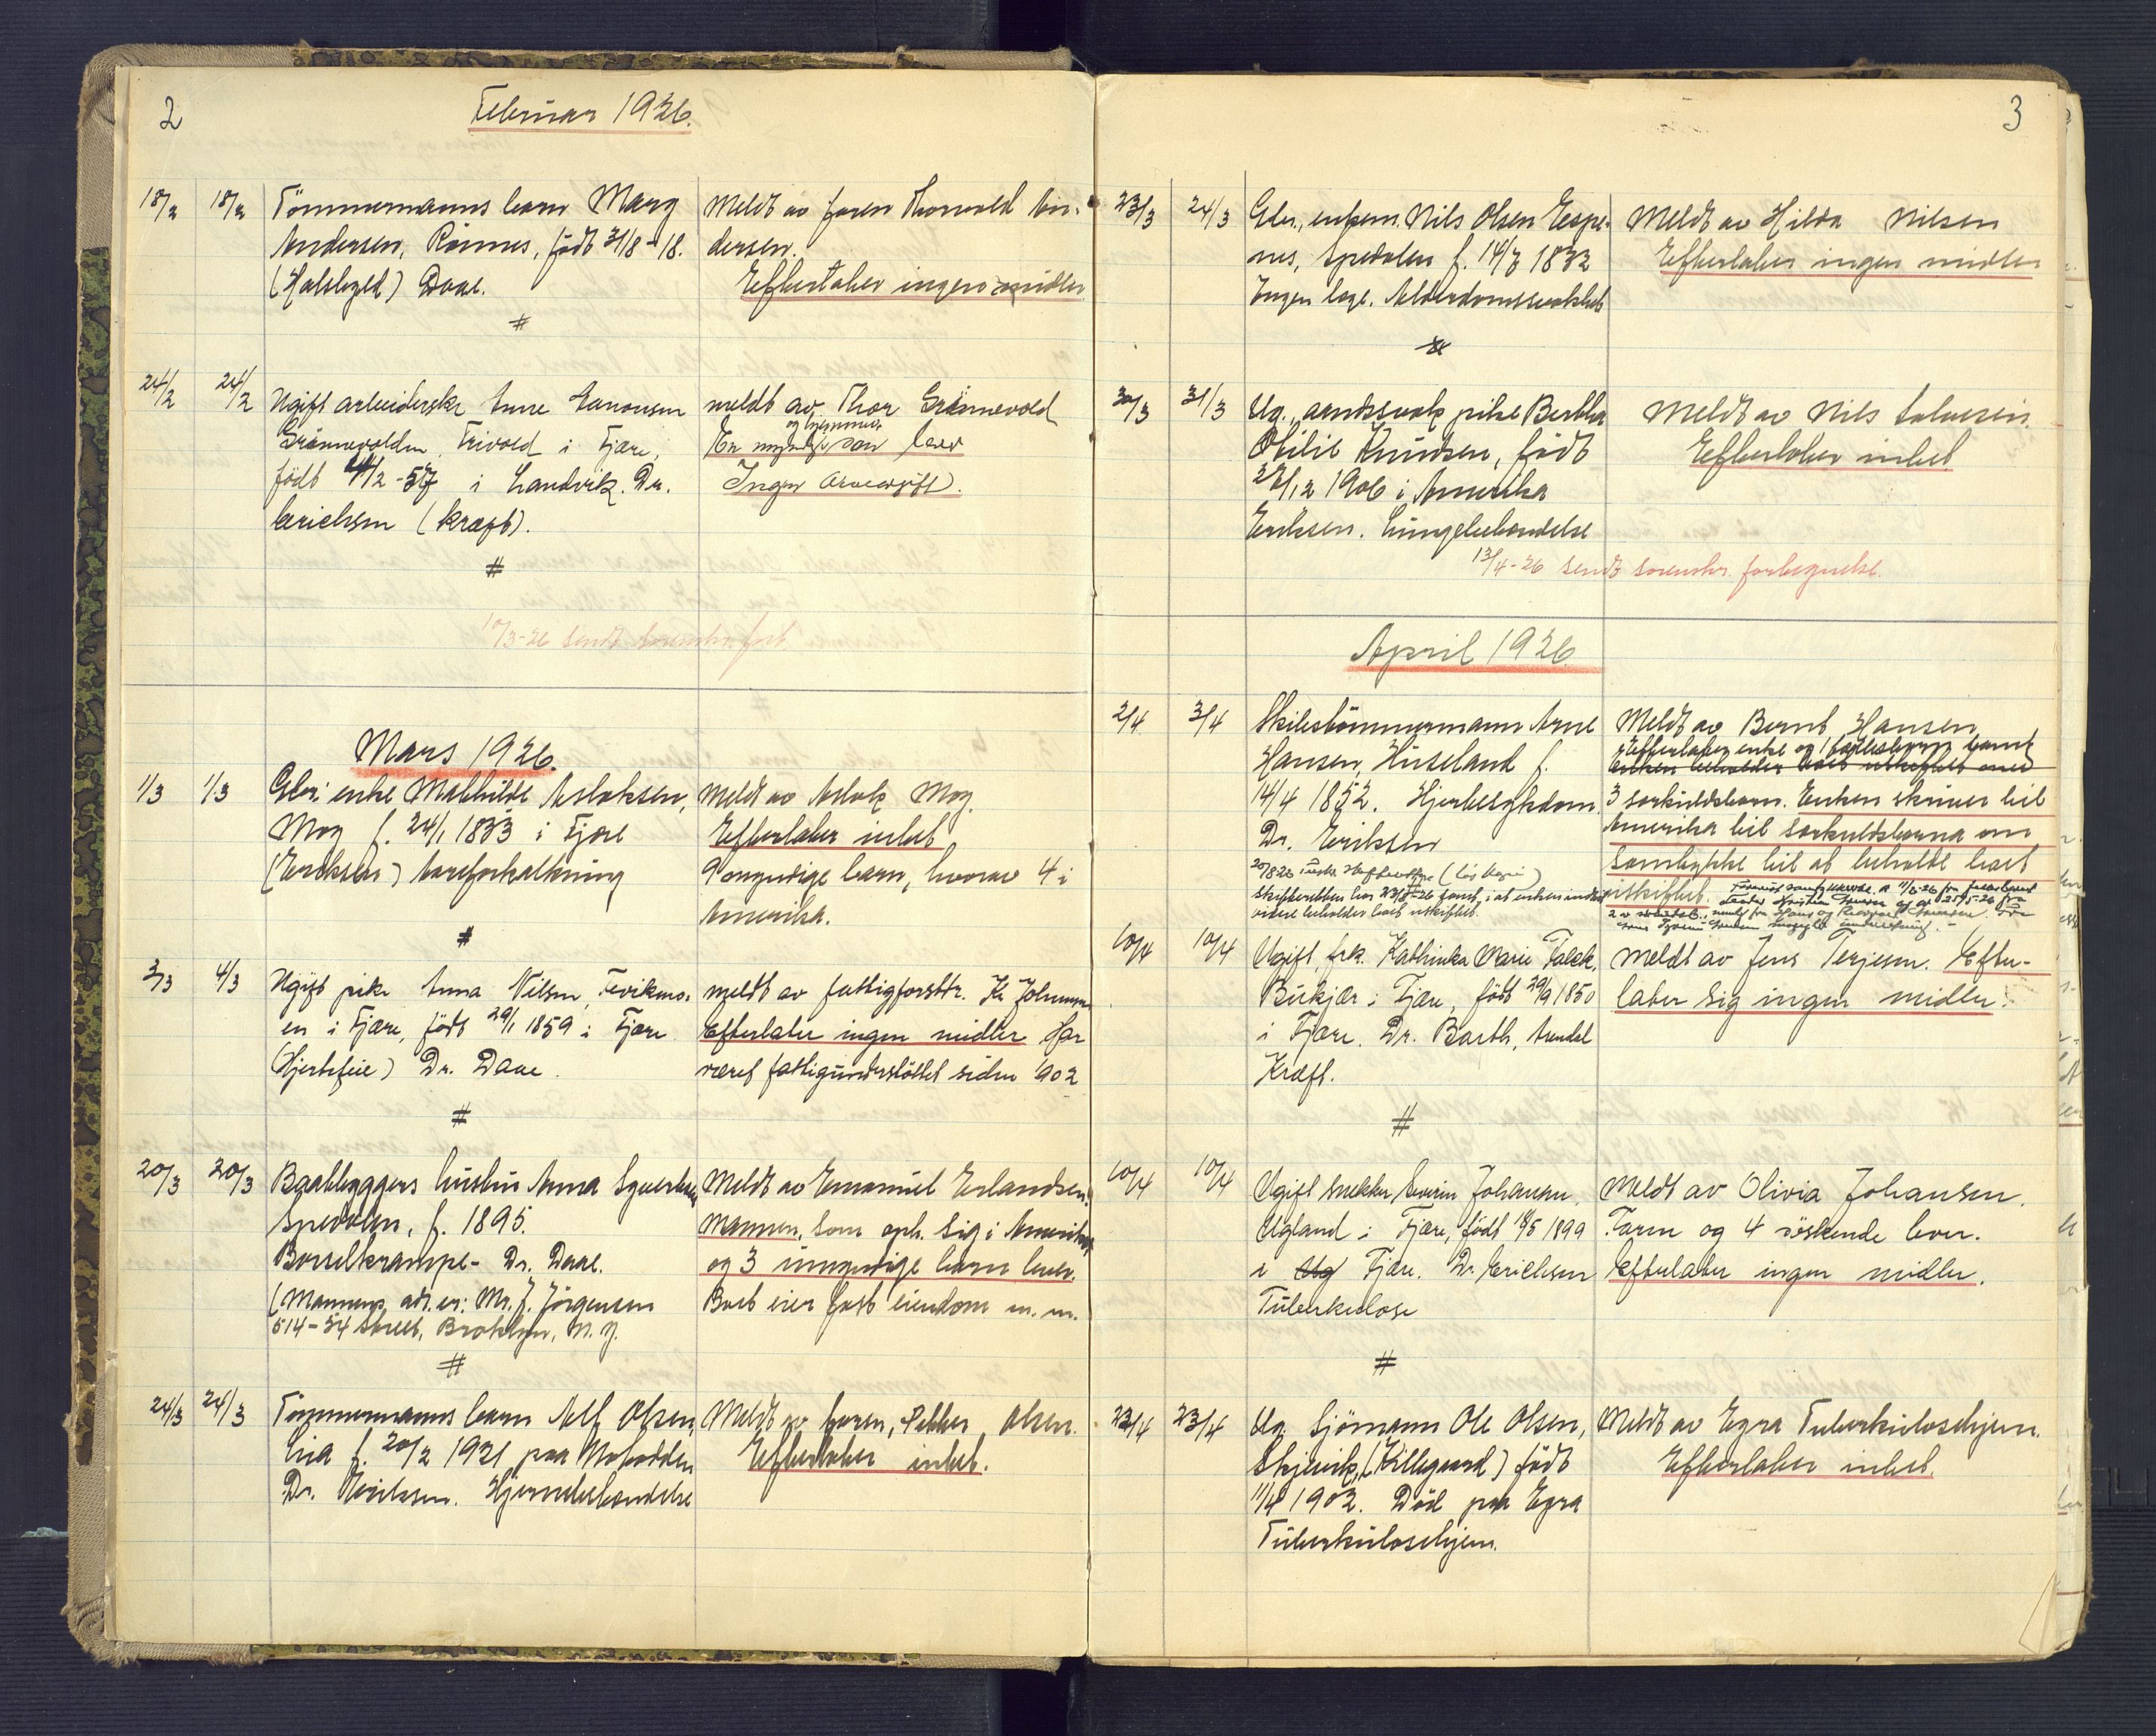 2
Februar 1926.
18/2 18/2 Tömmermanns barn Mary
Andersen, Rönnes, født 31/8-18.
(Halsbyld) Daae.
Meldt av faren Thorvald An-
dersen.
Efterlater ingen midler.
#
24/2 24/2 Ugift arbeiderske Anne
Grönnevolden, Trivold i Fjære,
født 2-57 i Landvik. Dr.
Erichsen (kræft).
meldt av Thor Grönnevold
En myndig søn lever
Ingen arveavgift.
#
10/3-26 sendt sorenskr. fort.
Mars 1926.
1/3 1/3 Gbr. enke Mathilde Aslaksen,
Moy f. 24/1 1833 i Fjære
(Eriksen) Aareforkalkning
Meldt av Aslak Moy.
Efterlater intet
9 myndige barn, hvorav 4 i
Amerika.
#
3/3 4/3 Ugift pike Anna Nilsen, Fevikmo-
en i Fjære, født 29/1 1859 i Fjære
(Hjertefeil) Dr. Daae.
meldt av fattigforstdr. Kr. Johnsen
Efterlater ingen midler Har
været fattigunderstöttet siden 1902
#
20/3 20/3 Baatbyggers hustru Anna Syvertsen
Spedalen, f. 1895.
Barselkrampe - Dr. Daae.
(Mannens adr. er: Mr. J. Jörgensen
514-54 Street, Broklyn, N.Y.
Meldt av Emanuel Erlandsen.
Mannen, som oph. sig i Amerika
og 3 umyndige barn lever.
Boet eier fast eiendom m.m.
#
24/3 24/3 Tömmermanns barn Alf Olsen,
Lia f. 20/2 1921 paa
Dr. Eriksen. Hjernebetændelse
Meldt av faren, Petter Olsen.
Efterlater intet.
3
23/3 24/3 Gbr., enkem. Nils Olsen Espe-
nes, Spedalen f. 14/3 1832
Ingen læge. Alderdomssvakhet
Meldt av Hilda Nilsen
Efterlater ingen midler
30/3 31/3 Ug., aandssvak pike Bertha
Otilie Knudsen, født
27/12 1906 i Amerika
Eriksen. Lungebetændelse
Meldt av Nils Salvesen.
Efterlater intet
13/4-26 sendt sorenskr. fortegnelse.
April 1926
2/4 3/4 Skibstömmermann Arne
Hansen, Huseland f.
14/4 1852. Hjertesykdom.
Dr. Eriksen
Skifteretten har 23/8-26 i at enken
videre beholder boet uskiftet.
Meldt av Bernt Hansen
Efterlater enke og 1 fællesbarn samt
enken beholder boet uskiftet med
3 særkuldsbarn. Enken skriver til
Amerika til særkuldsbarna om
samtykke til at beholde boet
uskiftet.
10/4 10/4 Ugift frk. Kathinka Marie Falck,
Bukjær i Fjære, født 29/9 1850
i Fjære. Dr. Barth, Arendal
Kræft.
meldt av Jens Terjesen. Efter-
later sig ingen midler.
#
10/4 10/4 Ugift snekker Severin Johansen,
Ugland i Fjære, født 18/5 1899
i Ug Fjære. Dr. Erichsen
Tuberkulose
Meldt av Olivia Johansen.
Faren og 4 söskende lever.
Efterlater ingen midler.
#
23/4 23/4 Ug. Sjömann Ole Olsen,
Skjevik, (Killegaard) født
11/4 1902. Död paa Egra
Tuberkulosehjem.
Meldt av Egra Tuberkulosehjem.
Efterlater intet.